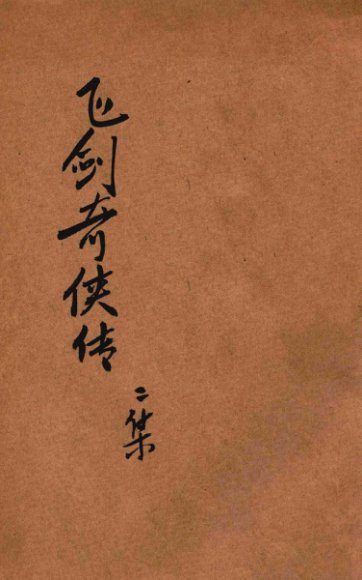 飞剑奇侠传
二集